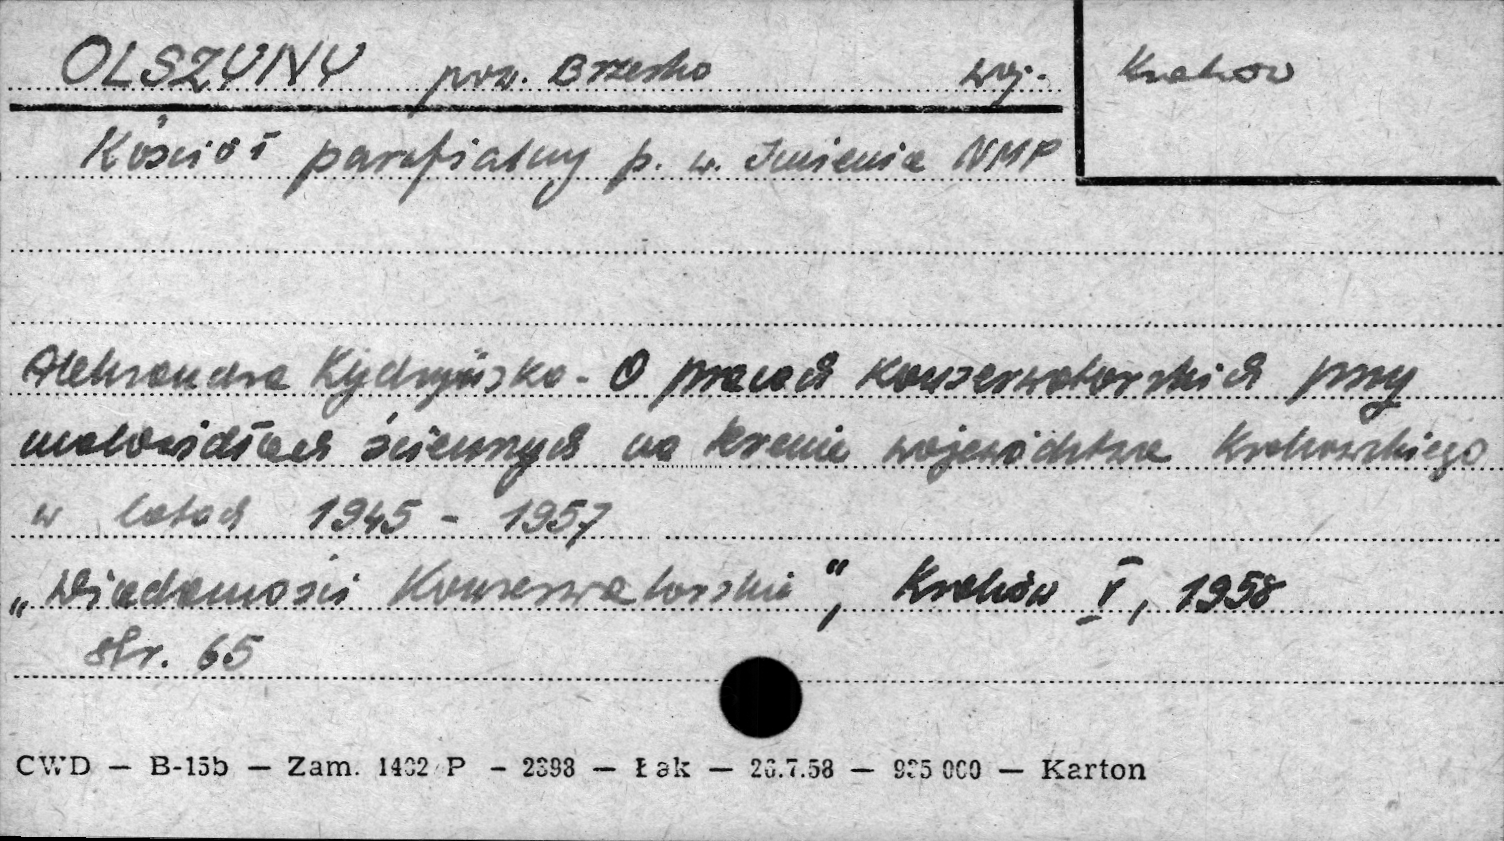 OLSZYNY pow. Brzesko woj. Krakow
Kościół parafialny p. w. Imienia NMP
Aleksandra Kydryńska - O pracach konserwatorskich przy
malowidłach ściennych na terenie województwa Krakowskiego
w latach 1945 - 1957
„Wiadomości Konserwatorskie", Kraków V, 1958
str. 65
CWD — B-15b — Zam. 1432 P — 2398 — Łak — 26.7.58 — 935 000 — Karton